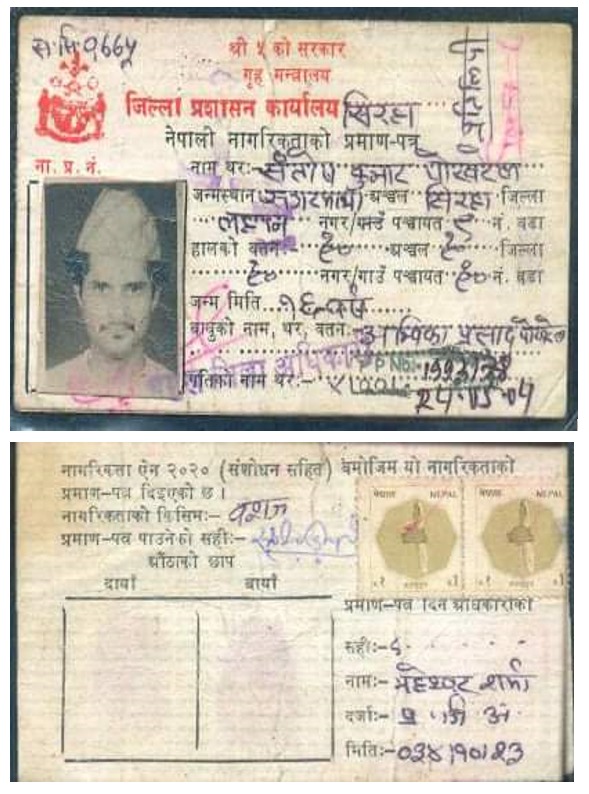 श्री ५ को सरकार
गृह मन्त्रालय
जिल्ला प्रशासन कार्यालय सिरहा
नेपाली नागरिकताको प्रमाण-पत्र
ना. प्र. नं.
नाम थरः- संतोष कुमार पोखरेल
जन्मस्थान अञ्चल सिरहा जिल्ला
लहान नगर/गाउँ पञ्चायत ९ नं. वडा
हालको वतनः- ऐ० अञ्चल ऐ० जिल्ला
ऐ० नगर/गाउँ पञ्चायत ऐ० नं. वडा
जन्म मिति १६ वर्ष
बाबुको नाम, थर, वतनः- अम्बिका प्रसाद पोखरेल
पतिको नाम थरः-
नागरिकता ऐन २०२० (संशोधन सहित) बमोजिम यो नागरिकताको
प्रमाण-पत्र दिइएको छ।
नागरिकताको किसिमः- वंशज
प्रमाण-पत्र पाउनेको सहीः-
औंठाको छाप
दायाँ बायाँ
नेपाल NEPAL नेपाल NEPAL
रु१ रु१
प्रमाण-पत्र दिने अधिकारीको
सहीः-
नामः- महेश्वर शर्मा
दर्जाः- प्र जि अ
मितिः-